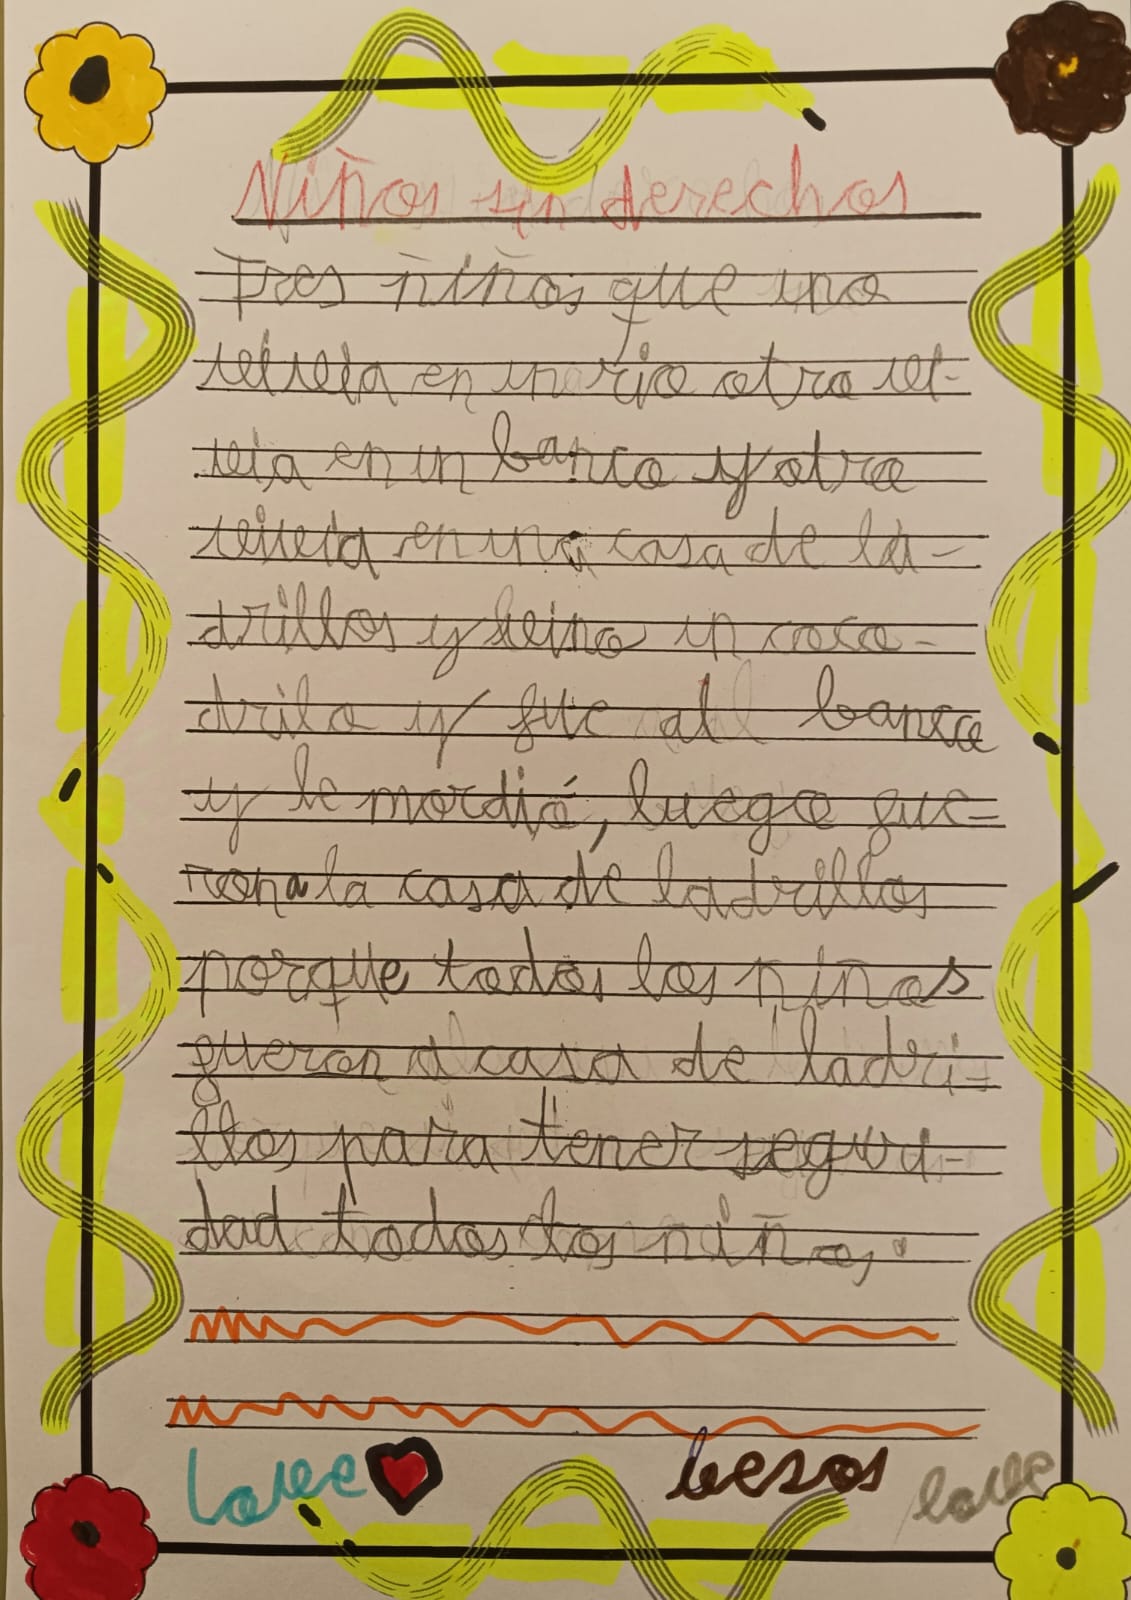 Niños sin derechos
Tres niños que uno
veiveia en un rio otro vei-
veia en un banco y otro
veiveia en una casa de la-
drillos y beino un coco-
drilo y fue al banco
y le mordió, luego fue-
ron a la casa de ladrillos
porque todos los niños
fueron a casa de ladri-
llos para tener seguri-
dad todos los niños.
Love
besos
love